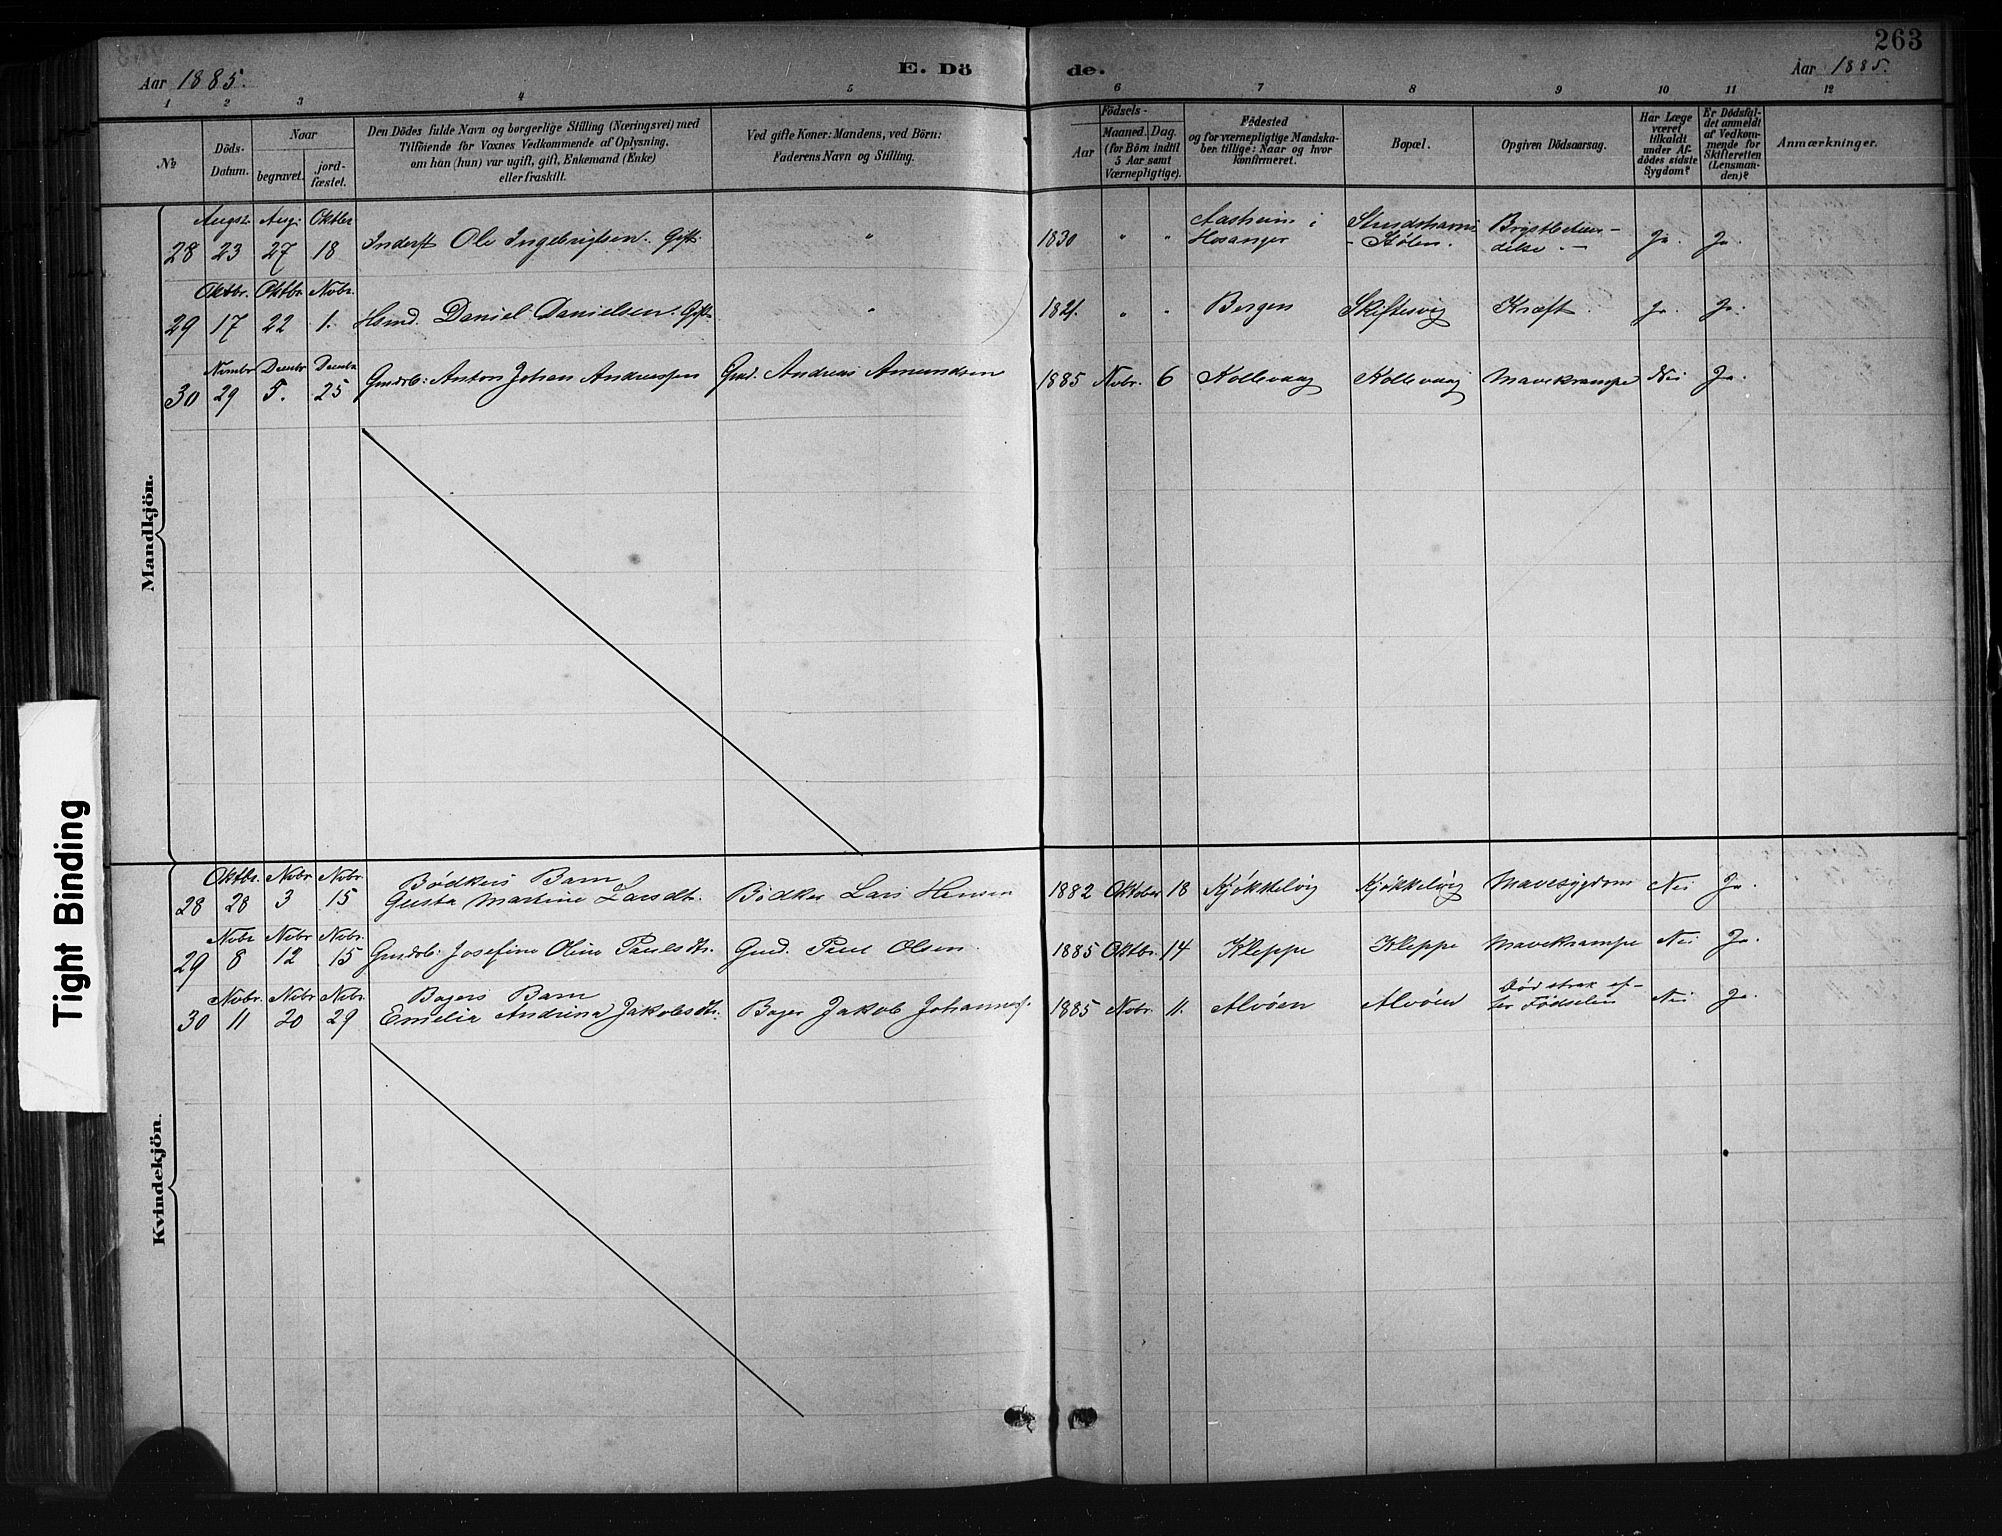 263
Aar 1885.
E. Dö de.
Aar 1885.
1 2 3 4 5 6 7 8 9 10 11 12
No
Döds-Datum.
Naar
begravet.
jord-fæstet.
Den Dödes fulde Navn og borgerlige Stilling (Næringsvei) med
Tilföiende for Voxnes Vedkommende af Oplysning,
om han (hun) var ugift, gift, Enkemand (Enke)
eller fraskilt.
Ved gifte Koner: Mandens, ved Börn:
Faderens Navn og Stilling.
Födsels-
Aar
Maaned. Dag.
(for Börn indtil
5 Aar samt
Værnepligtige).
Födested
og for værnepligtige Mandska-
ber tillige: Naar og hvor
konfirmeret.
Bopæl.
Opgiven Dödsaarsag.
Har Læge
været
tilkaldt
under Af-
dödes sidste
Sygdom?
Er Dödsfal-
det anmeldt
af Vedkom-
mende for
Skifteretten
(Lensman-
den)?
Anmærkninger.
Mandkjön.
28 Augst. 23 Aug. 27 Oktbr 18 Inderst Ole Ingebrigtsen. Gift. " 1830 " " Aasheim i Hosanger Kølen. Brystbetæn-delse Ja. Ja.
29 Oktbr. 17 Oktbr 22 Novbr. 1. Hsmd. Daniel Danielsen. Gift. " 1821. " " Bergen Skiftesvig Kræft. Ja. Ja.
30 Novmbr 29 Decmbr 5. Decmbr 25 Gmdsb: Anton Johan Andreassen Gmd. Andreas Amundsen 1885 Novbr. 6 Kollevaag Kollevaag Mavekrampe Nei Ja.
Kvindekjön.
28 Oktbr. 28 Novbr 3 Novbr. 15 Bødkers Barn
Gusta Martine Larsdtr. Bødker Lars Hansen 1882 Oktober 18 Kjøkkelvig Kjøkkelvig Mavesygdom Nei Ja.
29 Novbr 8 Novbr 12 Novbr. 15 Gmdsb. Josefine Oline Paulsdtr. Gmd. Paul Olsen. 1885 Oktbr. 14 Kleppe Kleppe Mavekrampe Nei Ja.
30 Novbr. 11 Novbr 20 Novbr. 29 Bagers Barn
Emelia Andrina Jakobsdtr. Bager Jakob Johannes. 1885 Novbr. 11. Alvøen Alvøen Død strax ef-
ter Fødselen Nei Ja.
Tight Binding